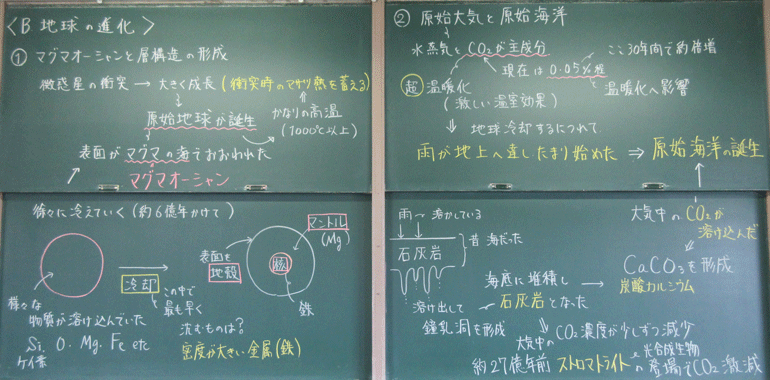 〈B 地球の進化〉
① マグマオーシャンと層構造の形成
微惑星の衝突 → 大きく成長 (衝突時のマサツ熱を蓄える)
原始地球が誕生
かなりの高温
(1000℃以上)
表面がマグマの海でおおわれた
マグマオーシャン
徐々に冷えていく(約6億年かけて)
様々な
物質が溶け込んでいた
Si, O, Mg, Fe etc
ケイ素
冷却
この中で
最も早く
沈むものは?
密度が大きい金属(鉄)
表面を
地殻
核
鉄
マントル
(Mg)
② 原始大気と原始海洋
水蒸気とCO₂が主成分
現在は0.05%程
ここ30年間で約倍増
温暖化へ影響
超 温暖化
(激しい温室効果)
⇓ 地球冷却するにつれて
雨が地上へ達したまり始めた ⇒ 原始海洋の誕生
大気中のCO₂が
溶け込んだ
CaCO₃を形成
炭酸カルシウム
雨 溶かしている
石灰岩
昔 海だった
海底に堆積し
石灰岩となった
溶け出して
鐘乳洞を形成
大気中の
CO₂濃度が少しずつ減少
約27億年前 ストロマトライトと光合成生物
の登場でCO₂激減